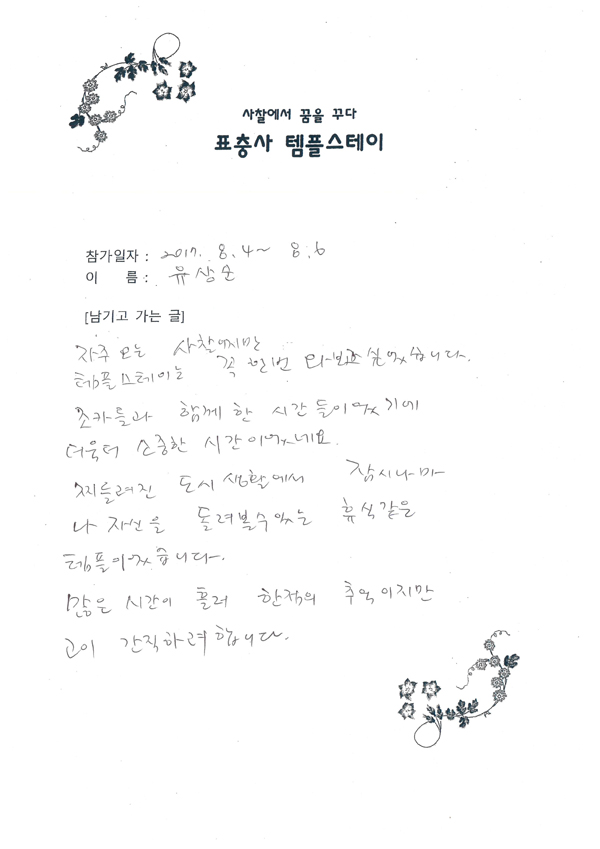 사찰에서 꿈을 꾸다
표충사 템플스테이
참가일자 : 2017. 8. 4 ~ 8. 6
이 름 : 유상순
[남기고 가는 글]
자주 오는 사찰에지만
템플스테이는 꼭 한번 와보고 싶었습니다.
조카들과 함께 한 시간들이었기에
더욱더 소중한 시간이었네요.
찌들려진 도시 생활에서 잠시나마
나 자신을 돌려볼수있는 휴식같은
템플이었습니다.
많은 시간이 흘러 한적의 추억이지만
고이 간직하려합니다.